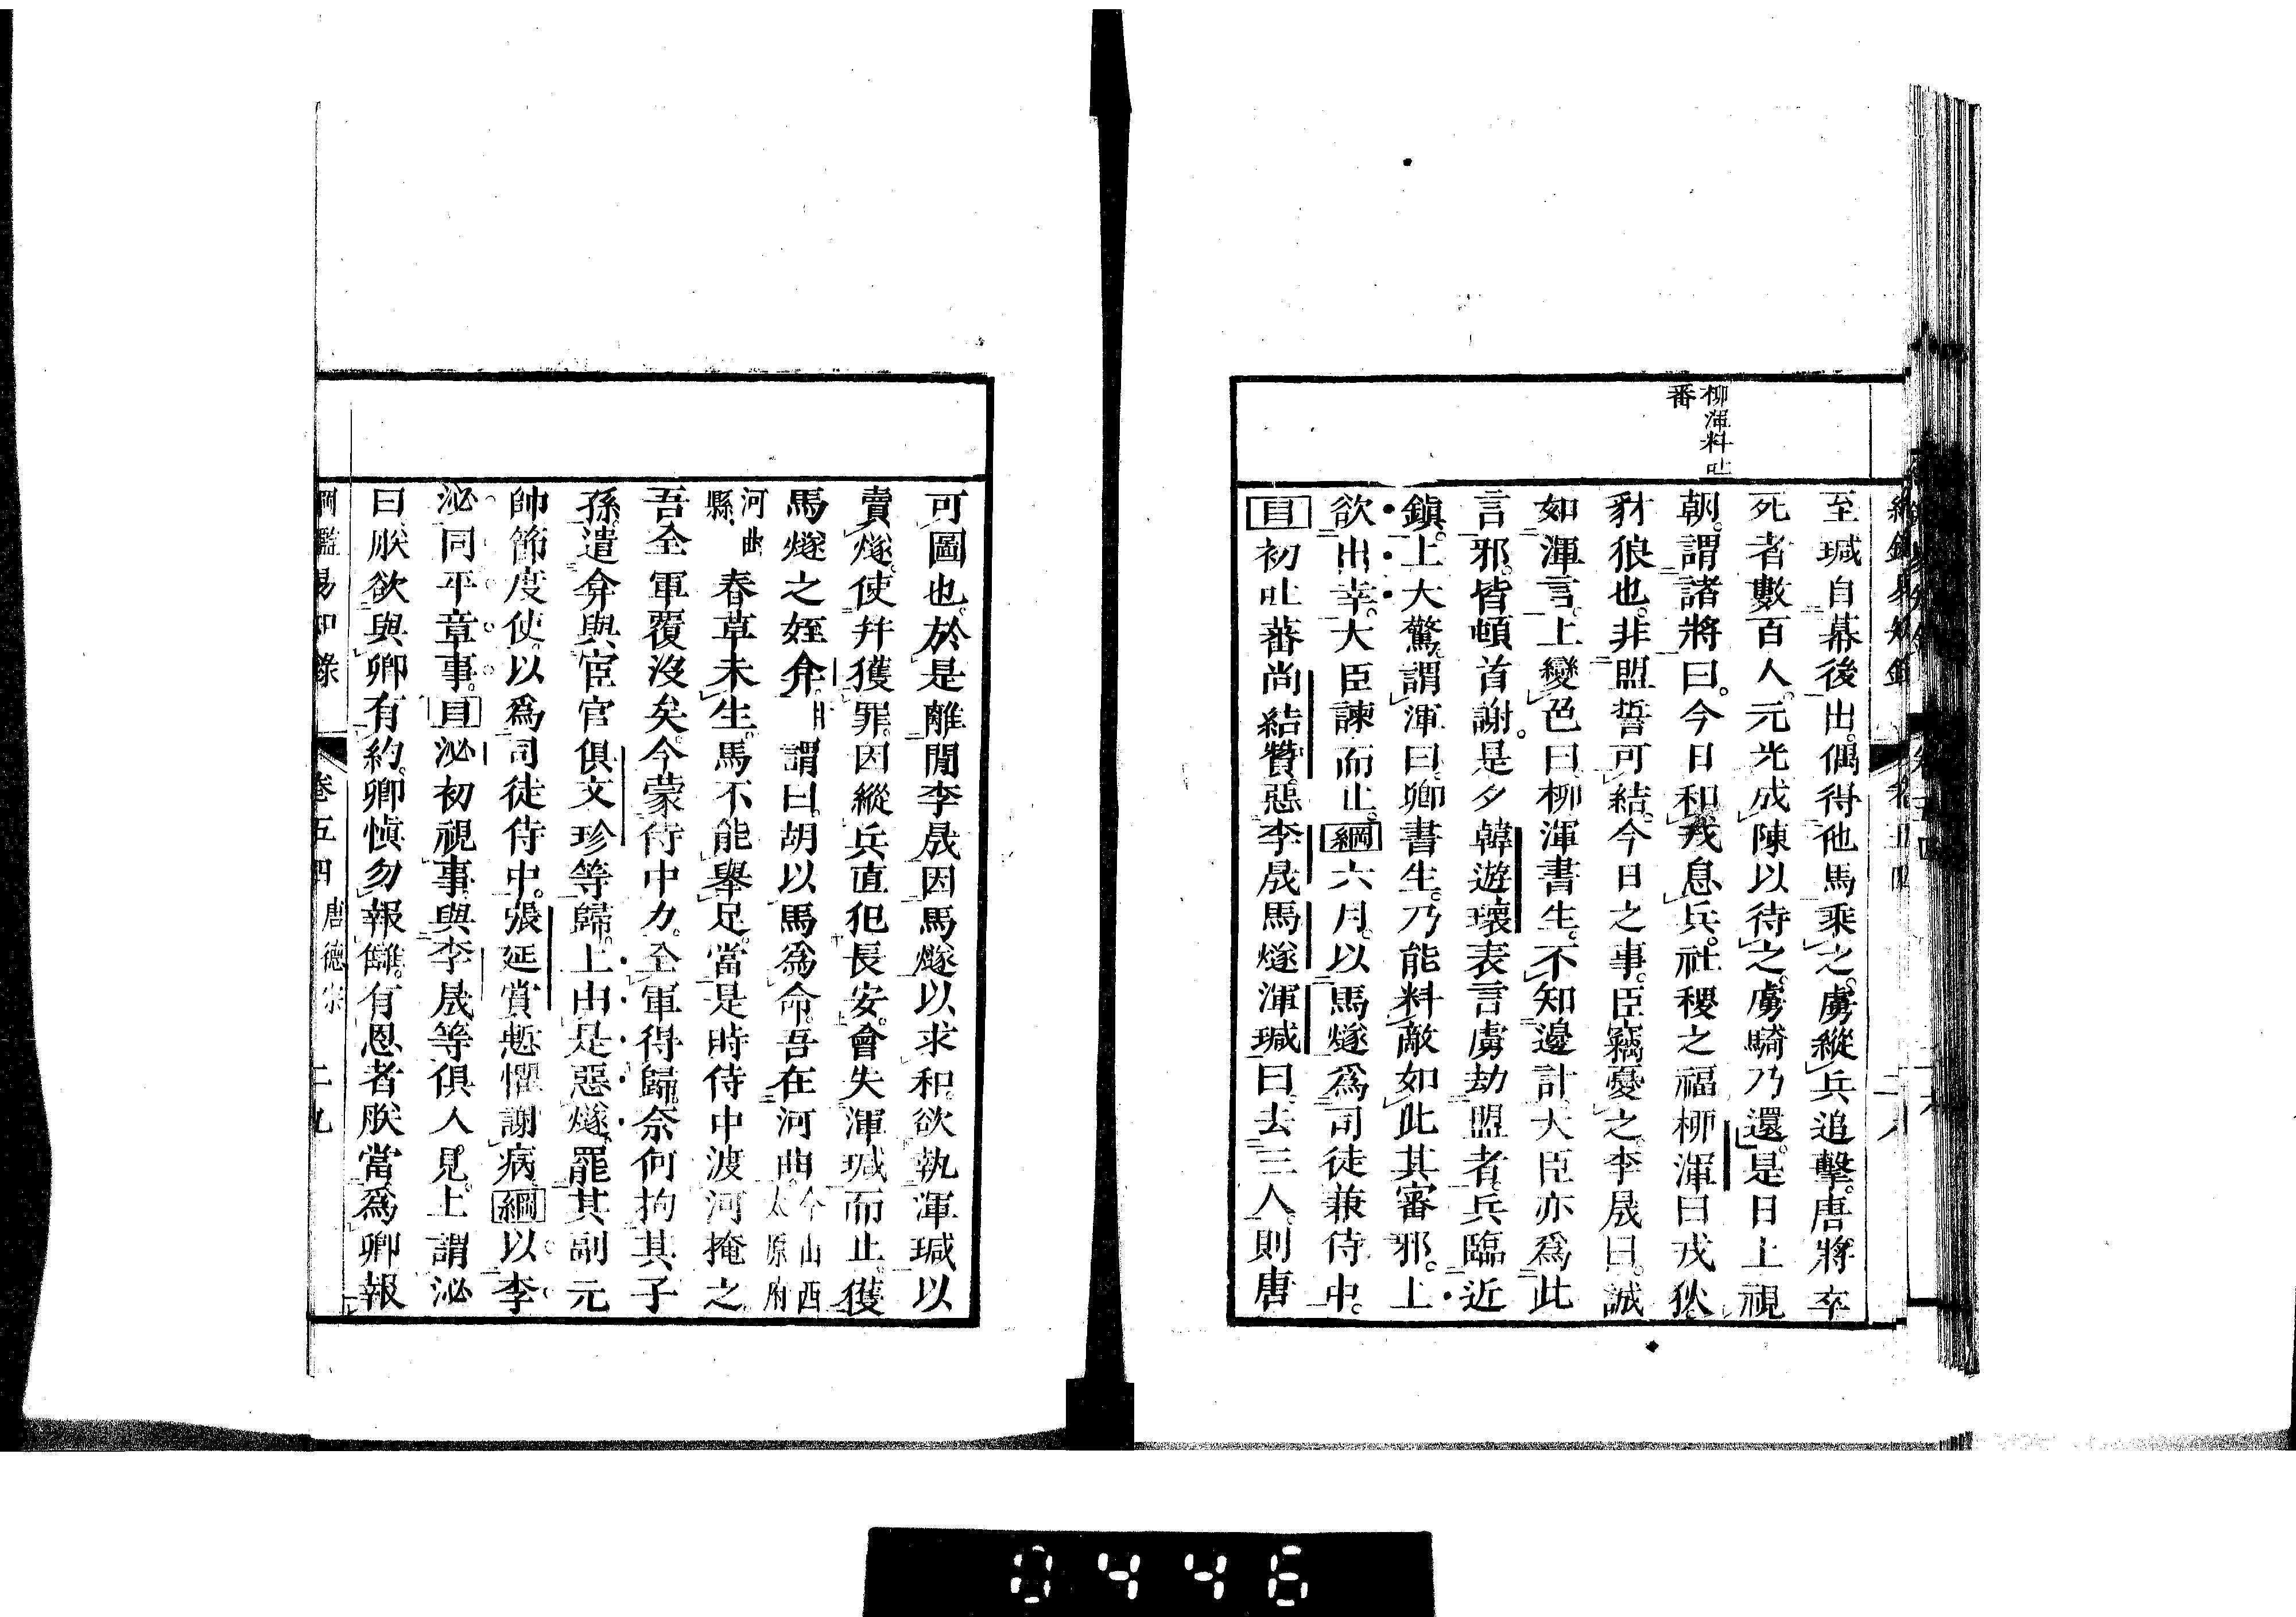 柳渾料吐
番
至瑊自幕後出。偶得他馬乘之。虜縱兵追擊。唐將卒
死者數百人。元光成陳以待之。虜騎乃還。是日上視
朝。謂諸將曰。今日和戎息兵。社稷之福。柳渾曰。戎狄。
豺狼也。非盟誓可結。今日之事。臣竊憂之。李晟曰。誠
如渾言。上變色曰。柳渾書生。不知邊計。大臣亦爲此
言邪。皆頓首謝。是夕韓遊瓌表言。虜劫盟者。兵臨近
鎭。上大驚。謂渾曰。卿書生。乃能料敵如此其審邪。上
欲出幸。大臣諫而止。綱六月。以馬燧爲司徒兼侍中。
目初吐蕃尚結贊。惡李晟馬燧渾瑊曰。去三人。則唐
可圖也。於是離間李晟。因馬燧以求和。欲執渾瑊以
賣燧。使幷獲罪。因縱兵直犯長安。會失渾瑊而止。獲
馬燧之姪弇。謂曰。胡以馬爲命。吾在河曲。今山西
太原府
河曲
縣。春草未生。馬不能舉足。當是時侍中渡河掩之
吾全軍覆沒矣。今蒙侍中力。全軍得歸。奈何拘其子
孫。遣弇與宦官俱文珍等歸。上由是惡燧。罷其副元
帥節度使。以爲司徒侍中。張延賞慙懼。謝病。綱以李
泌同平章事。目泌初視事。與李晟等俱入見。上謂泌
曰。朕欲與卿有約。卿愼勿報讎。有恩者朕當爲卿報
綱鑑易知錄 卷五四 唐德宗 二九